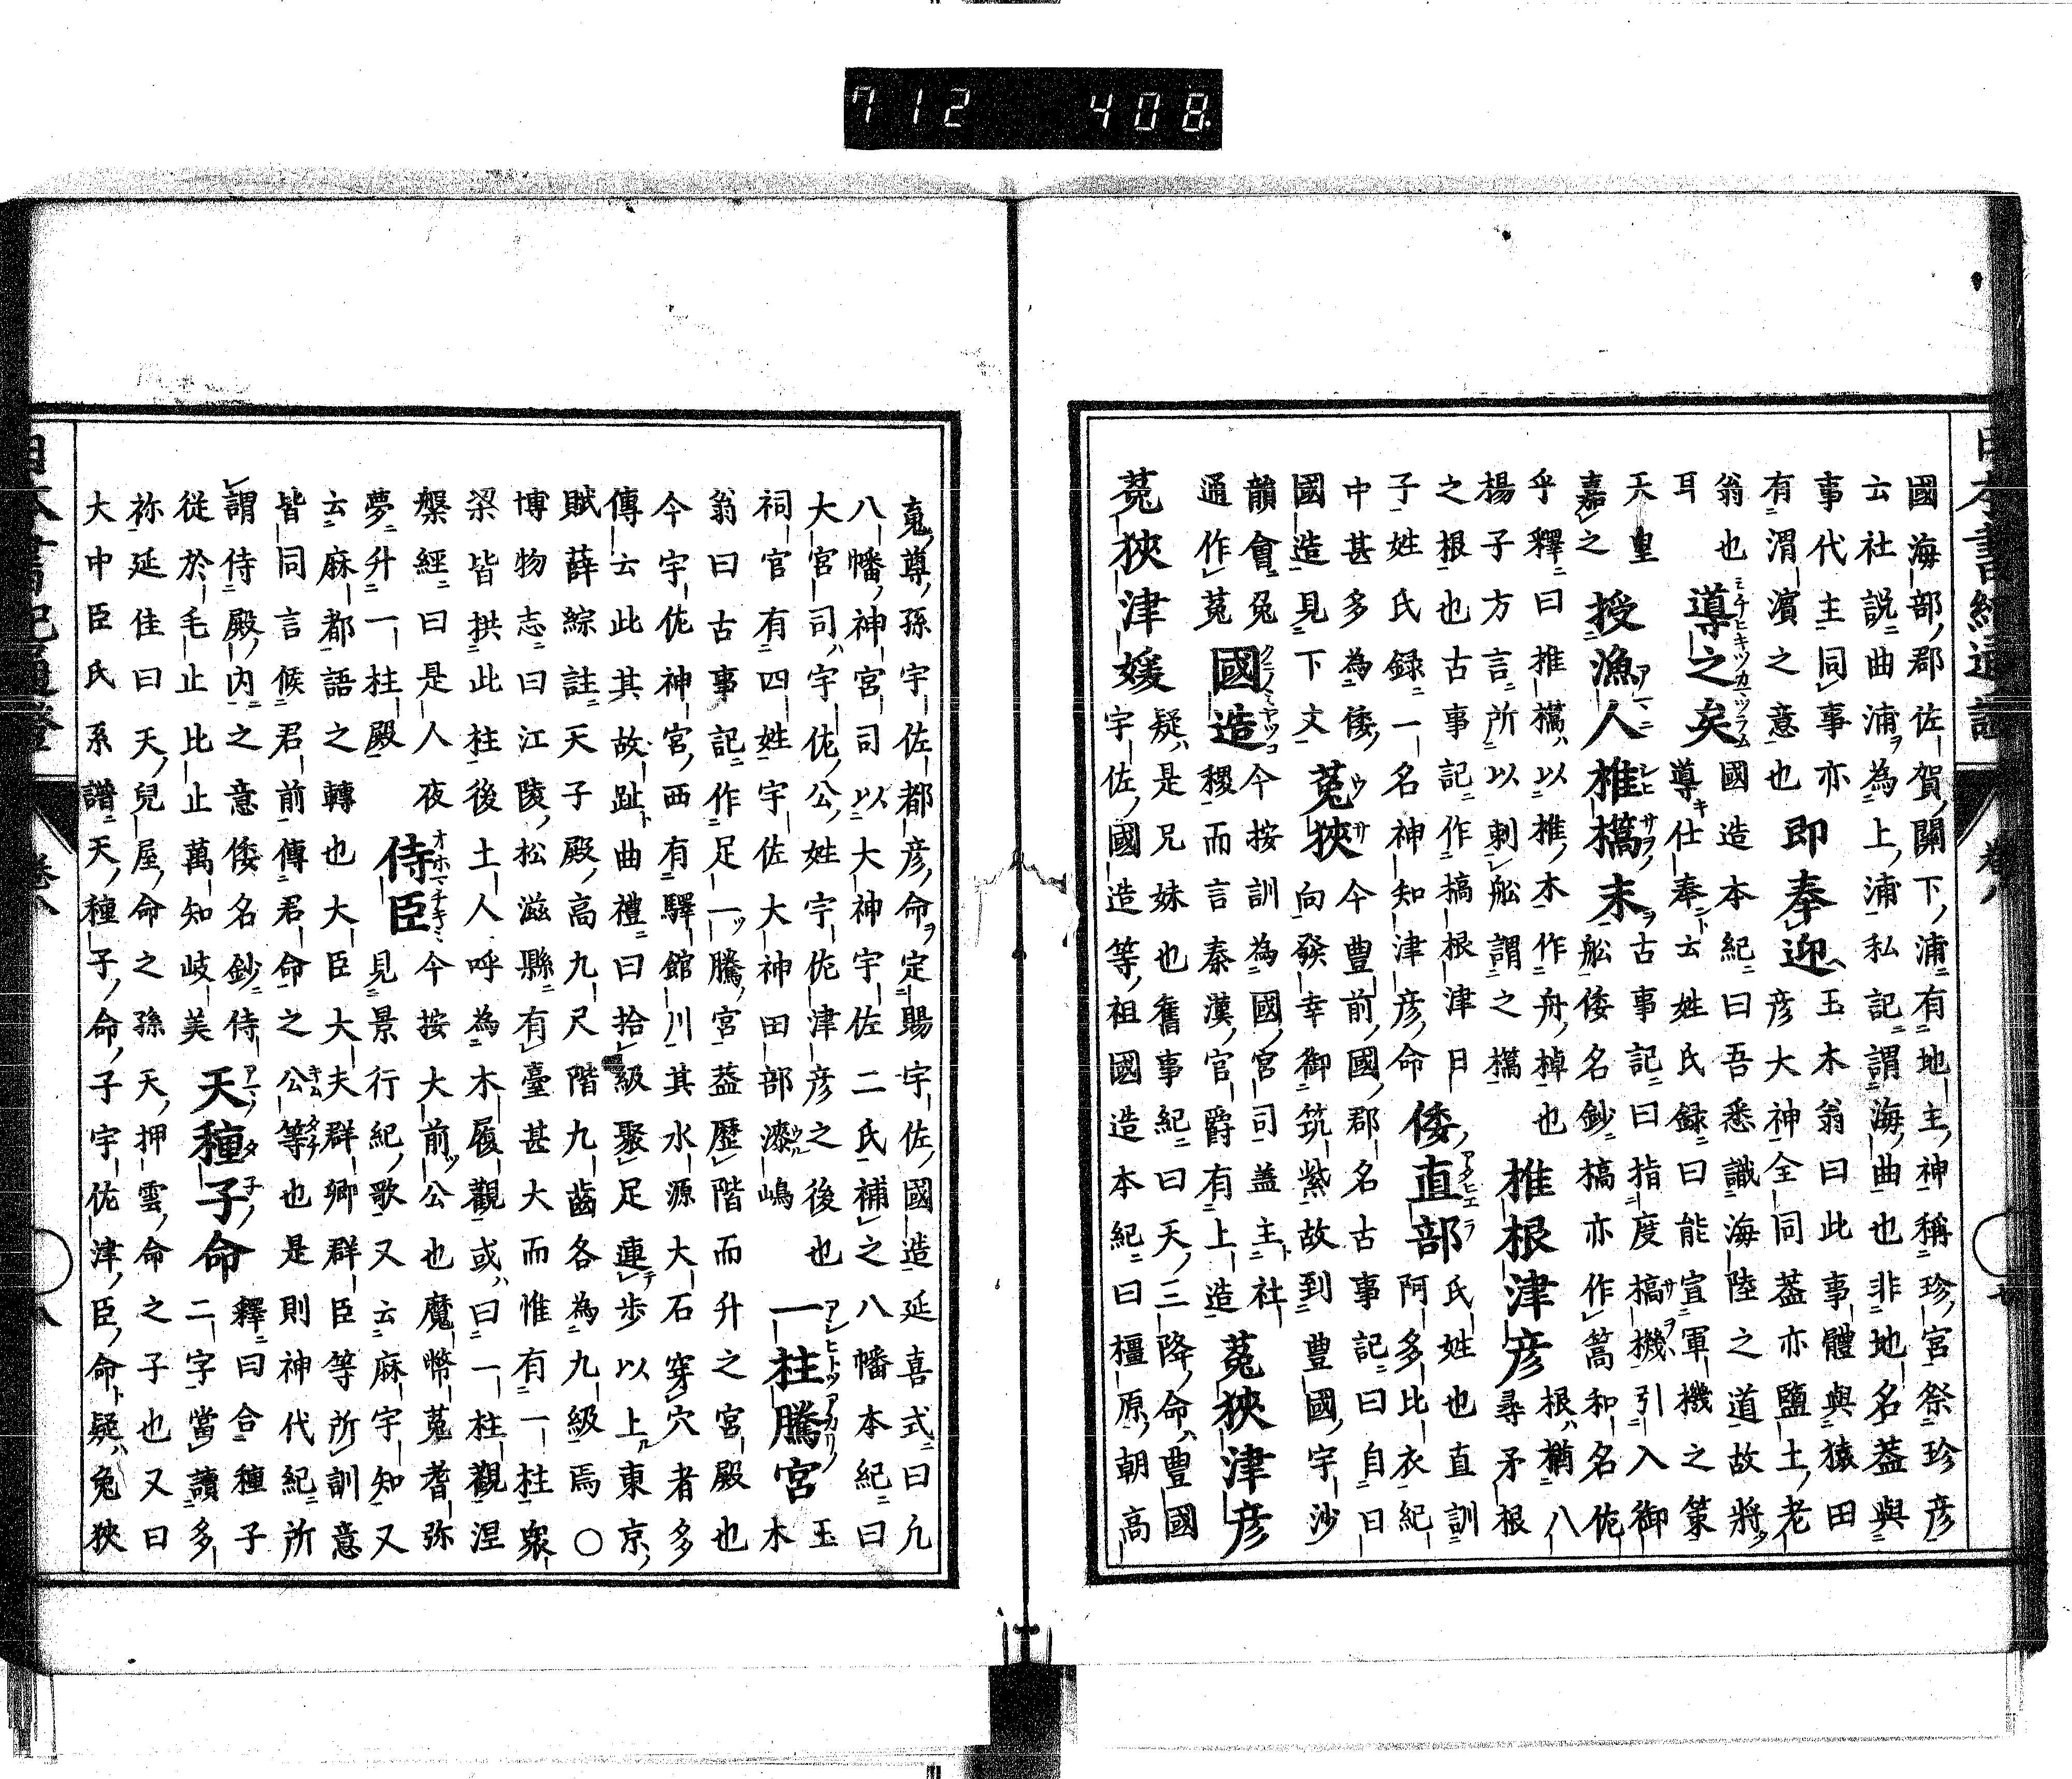 712 408
國海部郡佐賀關下浦有地主神稱珍宮祭珍彦
云社説曲浦為上浦私記謂海曲也非地名蓋與
事代主同事亦即奉迎玉木翁曰此事體與猿田
有渭濵之意也彦大神全同蓋亦鹽土老
翁也導之矣國造本紀曰吾悉識海陸之道故將
耳導仕奉云姓氏録曰能宜軍機之策
天皇授漁人椎㰏末古事記曰指度槁機引入御
嘉之船倭名鈔槁亦作篙和名佐
乎釋曰推㰏以推木作舟棹也椎根津彦根猶八
楊子方言所以刺船謂之㰏尋矛根
之根也古事記作槁根津日倭直部氏姓也直訓
子姓氏録一名神知津彦命阿多比衣紀
中甚多為倭菟狹今豊前國郡名古事記曰自日
國造見下文向發幸御筑紫故到豊國宇沙
韻會兔國造今按訓為國宮司蓋主社菟狹津彦
通作菟稷而言秦漢官爵有上造
菟狹津媛疑是兄妹也舊事紀曰天三降命豊國
宇佐國造等祖國造本紀曰橿原朝高
䰟尊孫宇佐都彦命定賜宇佐國造延喜式曰凡
八幡神宮司以大神宇佐二氏補之八幡本紀曰
大宮司宇佐公姓宇佐津彦之後也一柱騰宮玉
祠官有四姓宇佐大神田部漆嶋木
翁曰古事記作足一騰宮蓋歷階而升之宮殿也
今宇佐神宮西有驛館川其水源大石穿穴者多
傳云此其故趾曲禮曰拾級聚足連歩以上東京
賦薛綜註天子殿高九尺階九齒各為九級焉○
博物志曰江陵松滋縣有臺甚大而惟有一柱衆
梁皆拱此柱後土人呼為木履觀或曰一柱觀涅
槃經曰是人夜侍臣今按大前公也魔幣菟耆弥
夢升一柱殿見景行紀歌又云麻宇知又
云麻都語之轉也大臣大夫群卿群臣等所訓意
皆同言候君前傳君命之公等也是則神代紀所
謂侍殿内之意倭名鈔侍天種子命釋曰合種子
從於毛止比止萬知岐美二字當讀多
祢延佳曰天兒屋命之孫天押雲命之子也又曰
大中臣氏系譜天種子命子宇佐津臣命疑兔狹